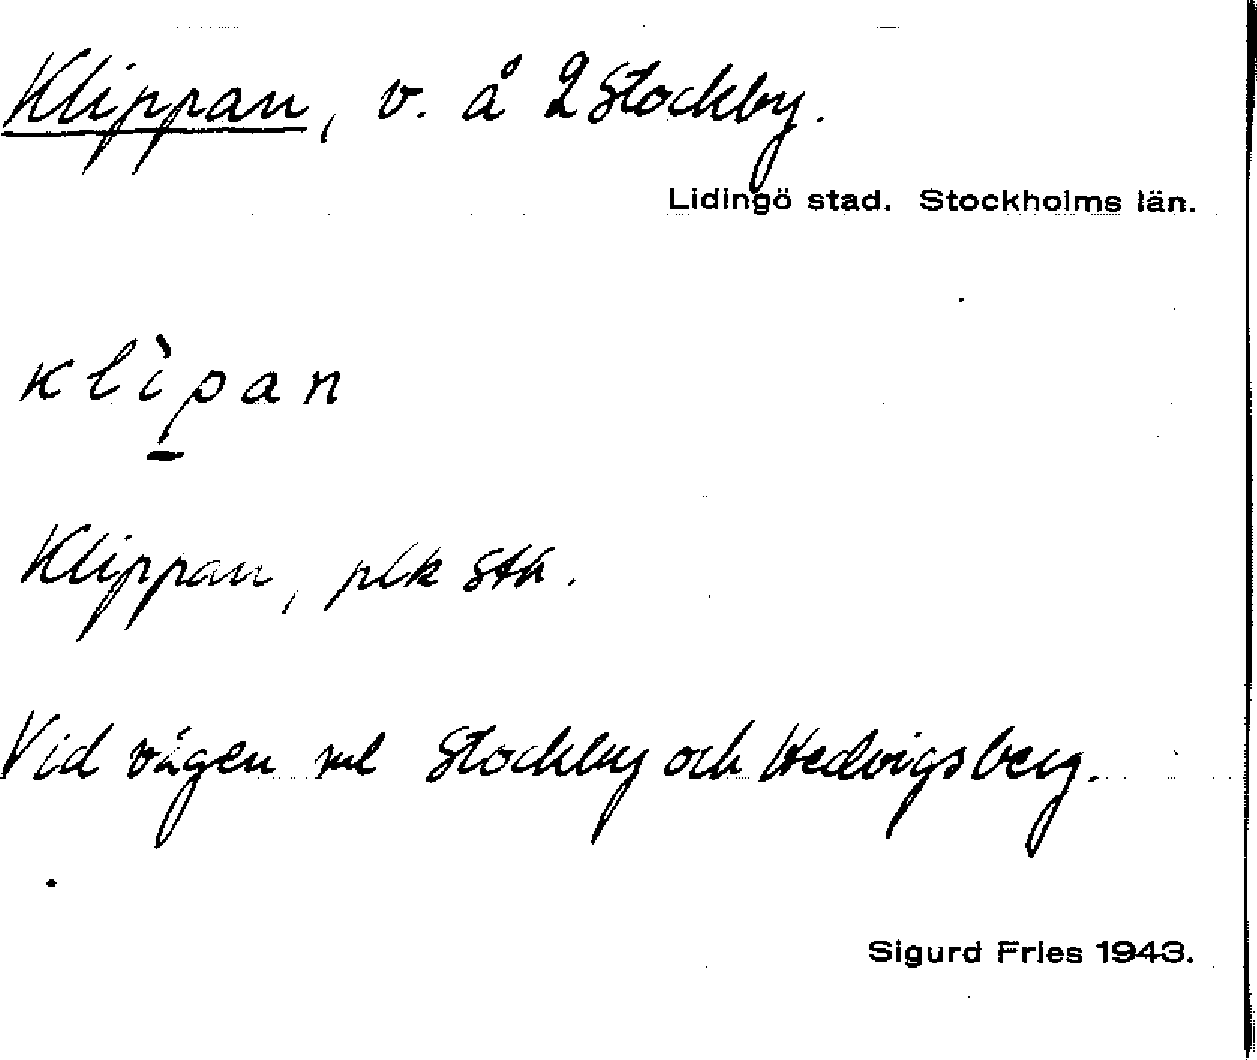 Klippan, v. å 2 Stockby.
Lidingö stad. Stockholms län.
klìp̱an
Klippan, plk Stk.
Vid vägen ml Stockby och Hedvigsberg.
Sigurd Fries 1943.